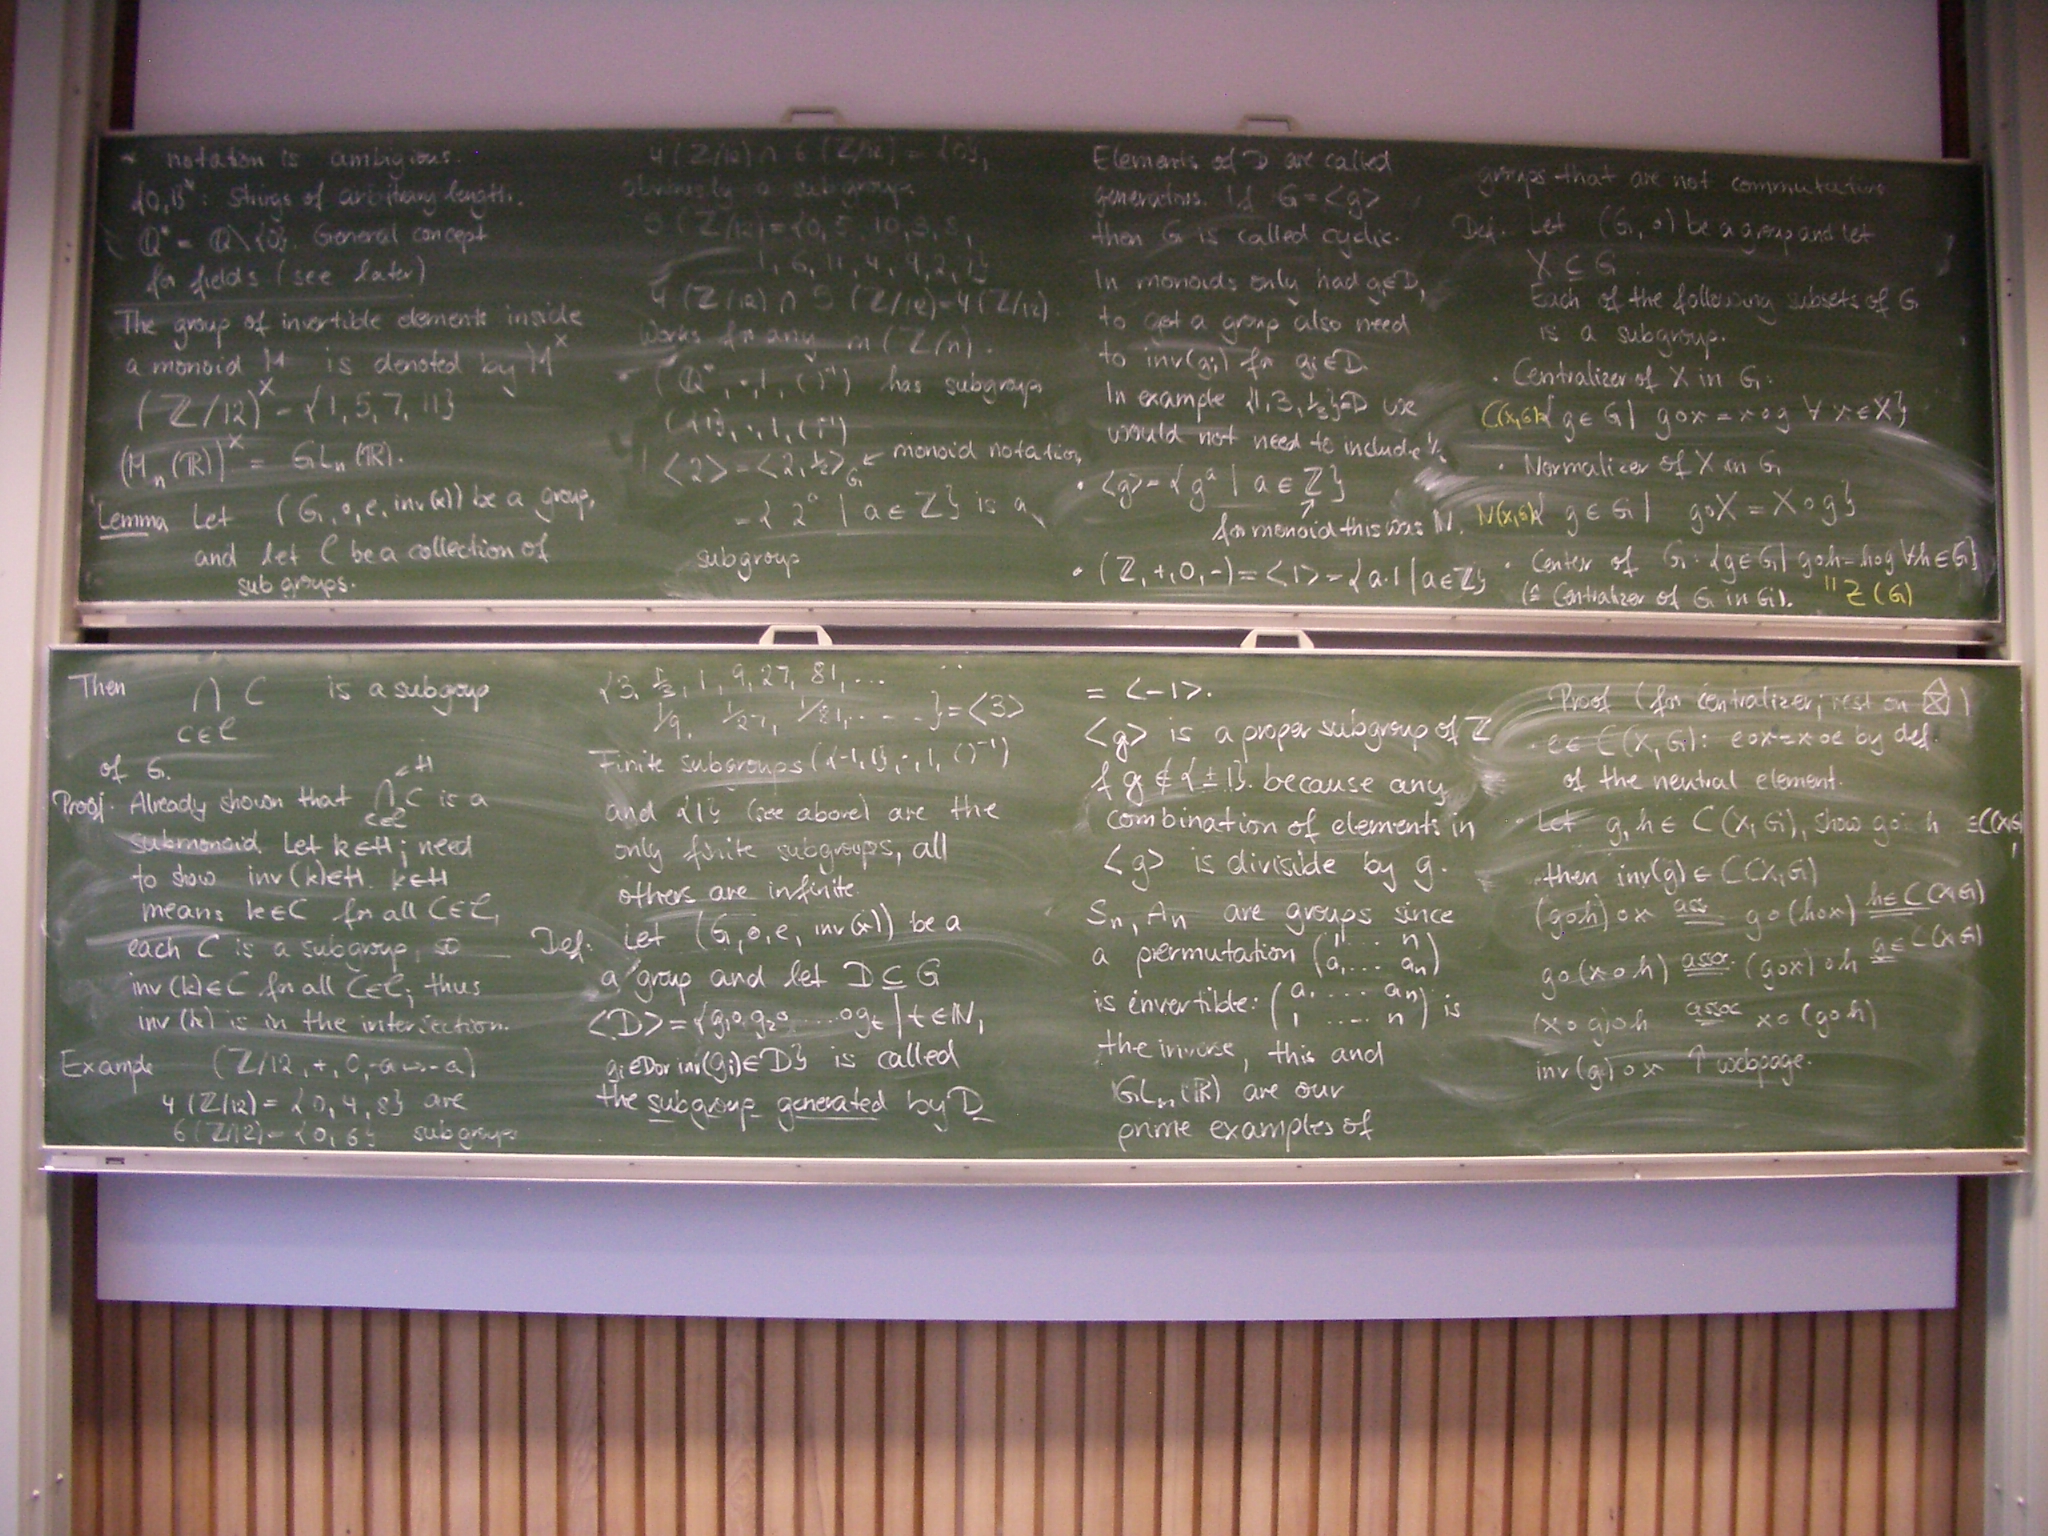 * notation is ambigious.
{0,1}*: Strings of arbitrary length.
Q* = Q\{0}. General concept
for fields (see later)
The group of invertible elements inside
a monoid M is denoted by M^×
(Z/12)^× = {1,5,7,11}
(M_n(R))^× = GL_n(R).
Lemma Let (G,∘,e,inv(x)) be a group,
and let C be a collection of
subgroups.
4(Z/12) ∩ 6(Z/12) = {0},
obviously a subgroup.
5(Z/12) = {0,5,10,3,8,
1,6,11,4,9,2,7}
4(Z/12) ∩ 5(Z/12) = 4(Z/12).
Works for any m(Z/n).
• (Q*,·,1,( )^-1) has subgroups
({1},·,1,( )^-1)
<2> = <2,1/2>_G ← monoid notation
= {2^a | a ∈ Z} is a
subgroup
Elements of D are called
generators. If G = <g>
then G is called cyclic.
In monoids only had g∈D,
to get a group also need
to inv(g_i) for g_i∈D.
In example {1,3,1/3}=D we
would not need to include 1/3.
• <g> = {g^a | a ∈ Z}
↑
for monoid this was N.
• (Z,+,0,-) = <1> = {a·1 | a∈Z}
groups that are not commutative
Def. Let (G,∘) be a group and let
X ⊆ G.
Each of the following subsets of G
is a subgroup.
• Centralizer of X in G:
C(X,G)={g∈G | g∘x = x∘g ∀ x∈X}
• Normalizer of X in G
N(X,G)={g∈G | g∘X = X∘g}
• Center of G: {g∈G | g∘h=h∘g ∀h∈G}
(≙ Centralizer of G in G). " Z(G)
Then ∩ C is a subgroup
C∈C
of G.
Proof. Already shown that ∩ C =H is a
C∈C
submonoid. Let k∈H; need
to show inv(k)∈H. k∈H
means k∈C for all C∈C,
each C is a subgroup, so
inv(k)∈C for all C∈C; thus
inv(k) is in the intersection.
Example (Z/12,+,0,-a↦-a)
4(Z/12) = {0,4,8} are
6(Z/12) = {0,6} subgroups
{3, 1/3, 1, 9, 27, 81, ... ..
1/9, 1/27, 1/81, ....} = <3>
Finite subgroups ({-1,1},·,1,( )^-1)
and {1} (see above) are the
only finite subgroups, all
others are infinite.
Def. Let (G,∘,e,inv(x)) be a
a group and let D⊆G
<D> = {g_1∘g_2∘....∘g_t | t∈N,
g_i∈D or inv(g_i)∈D} is called
the subgroup generated by D
= <-1>.
<g> is a proper subgroup of Z
if g∉{±1}. because any
combination of elements in
<g> is divisible by g.
S_n, A_n are groups since
a permutation (1 ... n)
(a_1 ... a_n)
is invertible: (a_1 .... a_n) is
(1 .... n)
the inverse, this and
GL_n(R) are our
prime examples of
Proof (for centralizer; rest on)
• e∈C(X,G): e∘x=x∘e by def.
of the neutral element.
• Let g,h∈C(X,G), show g∘h ∈C(X,G)
then inv(g)∈C(X,G)
(g∘h)∘x =ass= g∘(h∘x) =h∈C(X,G)=
g∘(x∘h) =asso.= (g∘x)∘h =g∈C(X,G)=
(x∘g)∘h =assoc= x∘(g∘h)
inv(g)∘x ↑ webpage.